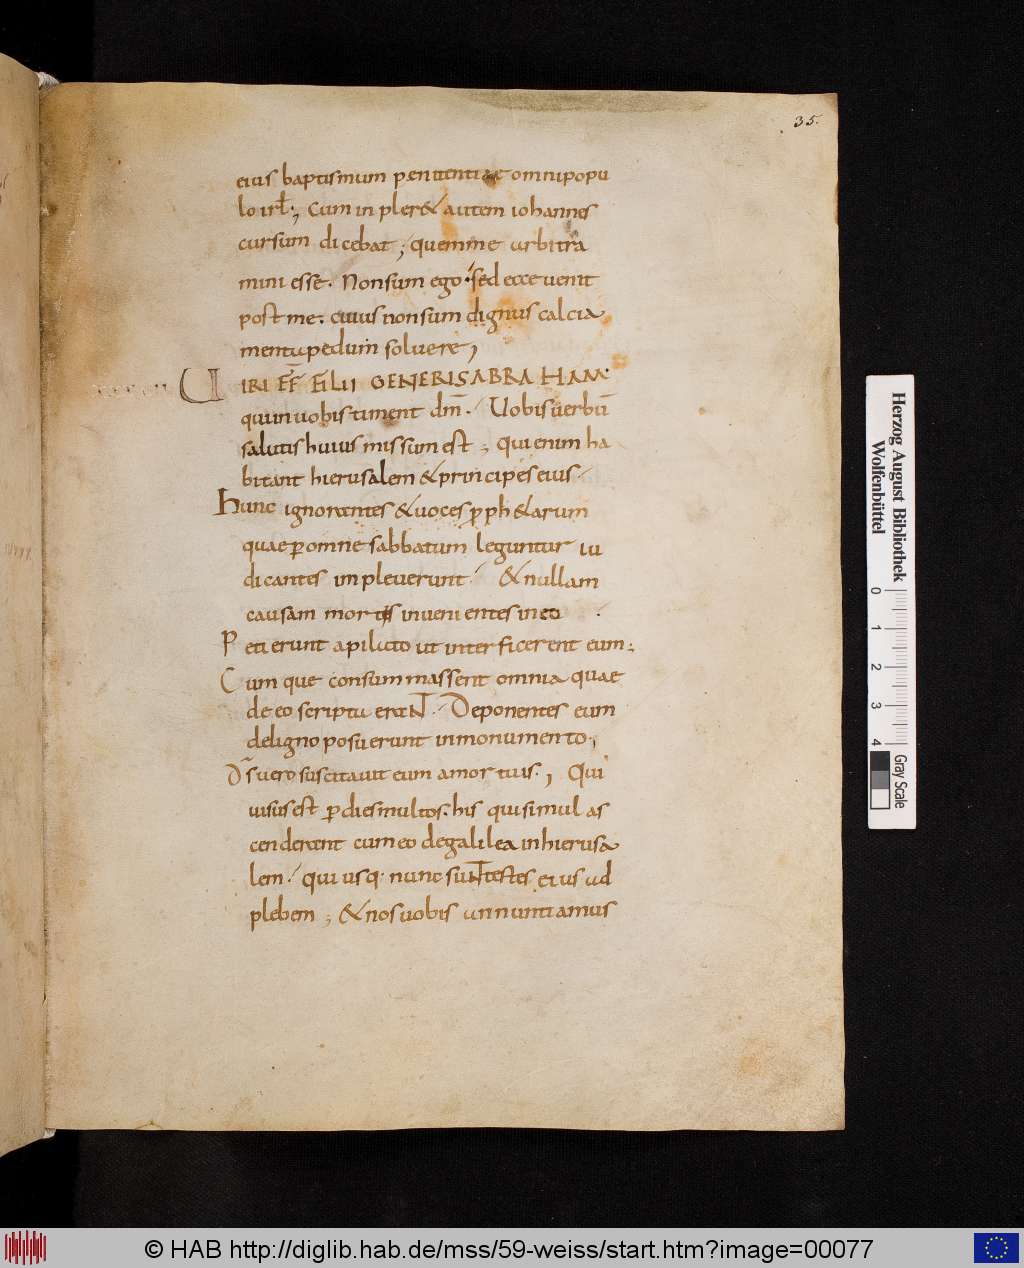 35.
eius baptismum penitentiae omnipopu
lo irƚ·, Cum inpler& autem iohannes
cursum dicebat ; quemme arbitra
mini esse. Nonsum ego· sed ecce uenit
post me. cuius nonsum dignus calcia
menta pedum soluere,
UIRI FF̄ FILII GENERIS ABRAHAM·
qui in uobis timent dm̄. Uobis uerbū
salutis huius missum est ; Qui enim ha
bitant hierusalem & principes eius
hunc ignorantes & uoces pph&arum
quae p omne sabbatum leguntur iu
dicantes impleuerunt & nullam
causam mortis inuenientes in eo
Petierunt apilato ut interficerent eum.
Cumque consummassent omnia quae
de eo scripta erant. Deponentes eum
deligno posuerunt inmonumento,
Ds̄ uero suscitauit eum amortuis., Qui
uisus est p dies multos. his qui simul as
cenderant cum eo degalilea inhierusa
lem. qui usq· nunc sunt testes eius ad
plebem ; & nos uobis annuntiamus
Herzog August Bibliothek
Wolfenbüttel
0 1 2 3 4
Gray Scale
© HAB http://diglib.hab.de/mss/59-weiss/start.htm?image=00077